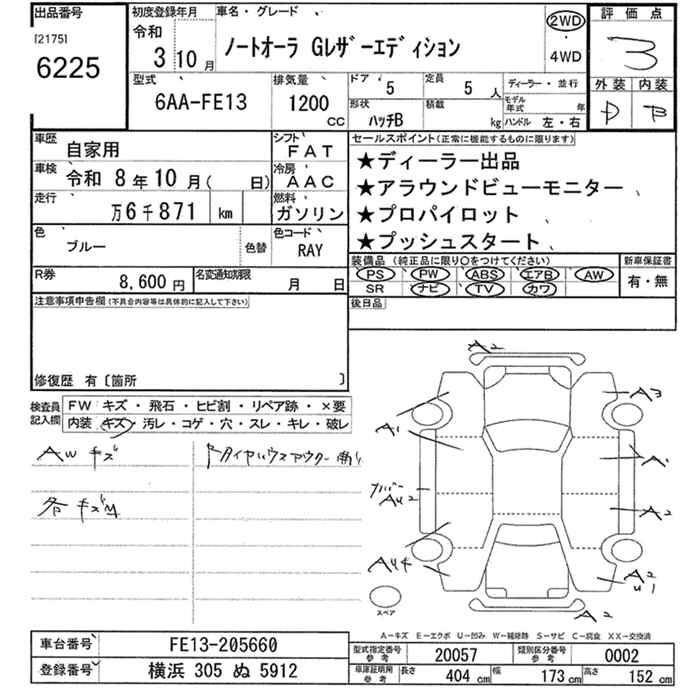 出品番号
[2175]
6225
初度登録年月
令和
3 10月
車名・グレード
ノートオーラ Gレザーエディション
2WD
・
4WD
評価点
3
外装 内装
D B
型式
6AA-FE13
排気量
1200
CC
ドア 5
定員 5 人
形状 ハッチB
積載 kg
ディーラー・並行
モデル年式 年
ハンドル 左・右
車歴 自家用
シフト FAT
車検 令和 8年10月( 日)
冷房 AAC
走行 万6千871 km
燃料 ガソリン
色 ブルー 色替
色コード RAY
R券 8,600 円
名変通知期限 月 日
セールスポイント(正常に機能するものに限ります)
★ディーラー出品
★アラウンドビューモニター
★プロパイロット
★プッシュスタート
装備品 (純正品に限り○をつけてください) 新車保証書
PS PW ABS エアB AW 有・無
SR ナビ TV カワ
後日品
注意事項申告欄(不具合内容等は具体的に記入して下さい)
修復歴 有〔箇所 〕
検査員記入欄
FW キズ・飛石・ヒビ割・リペア跡・×要
内装 キズ・汚レ・コゲ・穴・スレ・キレ・破レ
AW キズ
各キズM
A2
A3
A1
A1
AU2
A2
AU4
A2
U1
A2
スペア
A－キズ E－エクボ U－凹み W－補修跡 S－サビ C－腐食 XX－交換済
車台番号 FE13-205660
登録番号 横浜 305 ぬ 5912
型式指定番号 参考 20057
類別区分番号 参考 0002
車庫証明用 参考 長さ 404 cm 幅 173 cm 高さ 152 cm